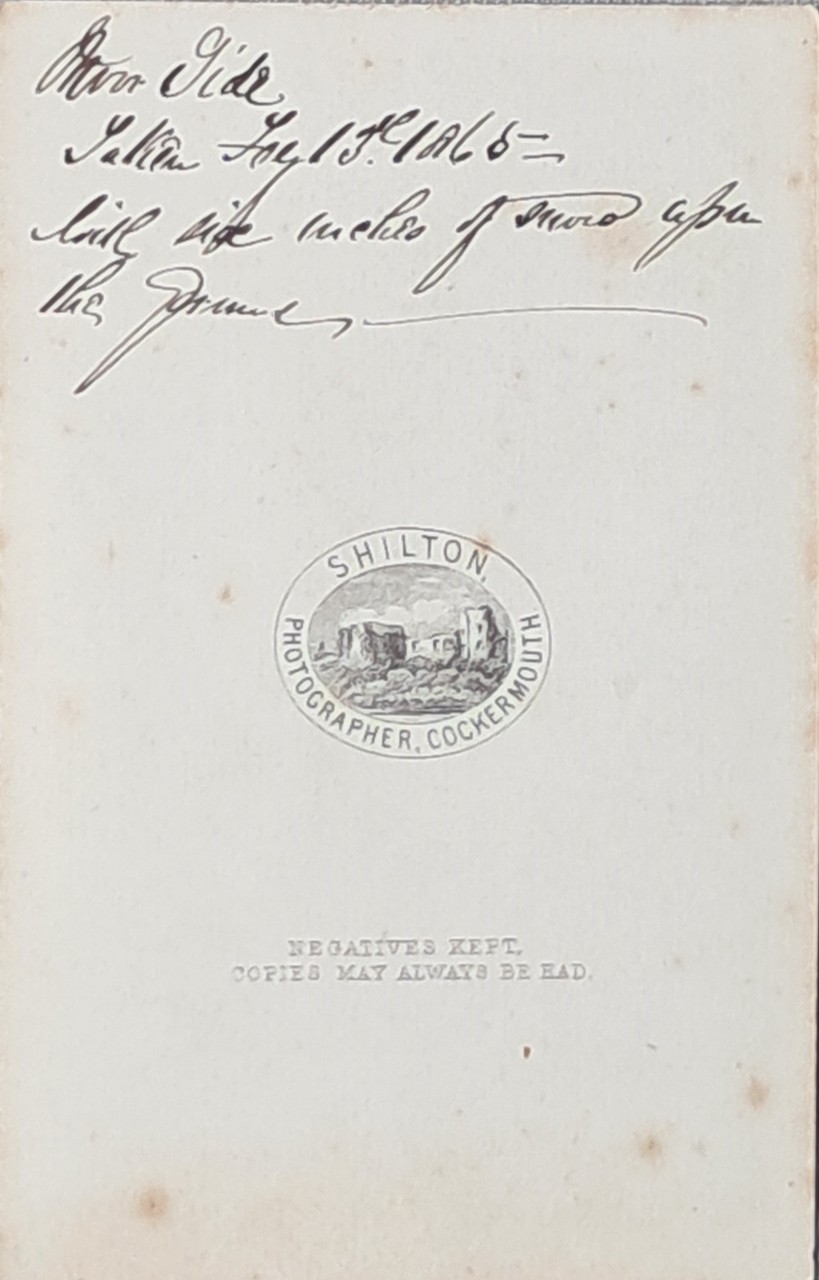 Moor Side
Taken Feby 13th. 1865 —
with six inches of snow upon
the Ground
SHILTON,
PHOTOGRAPHER, COCKERMOUTH.
NEGATIVES KEPT,
COPIES MAY ALWAYS BE HAD.